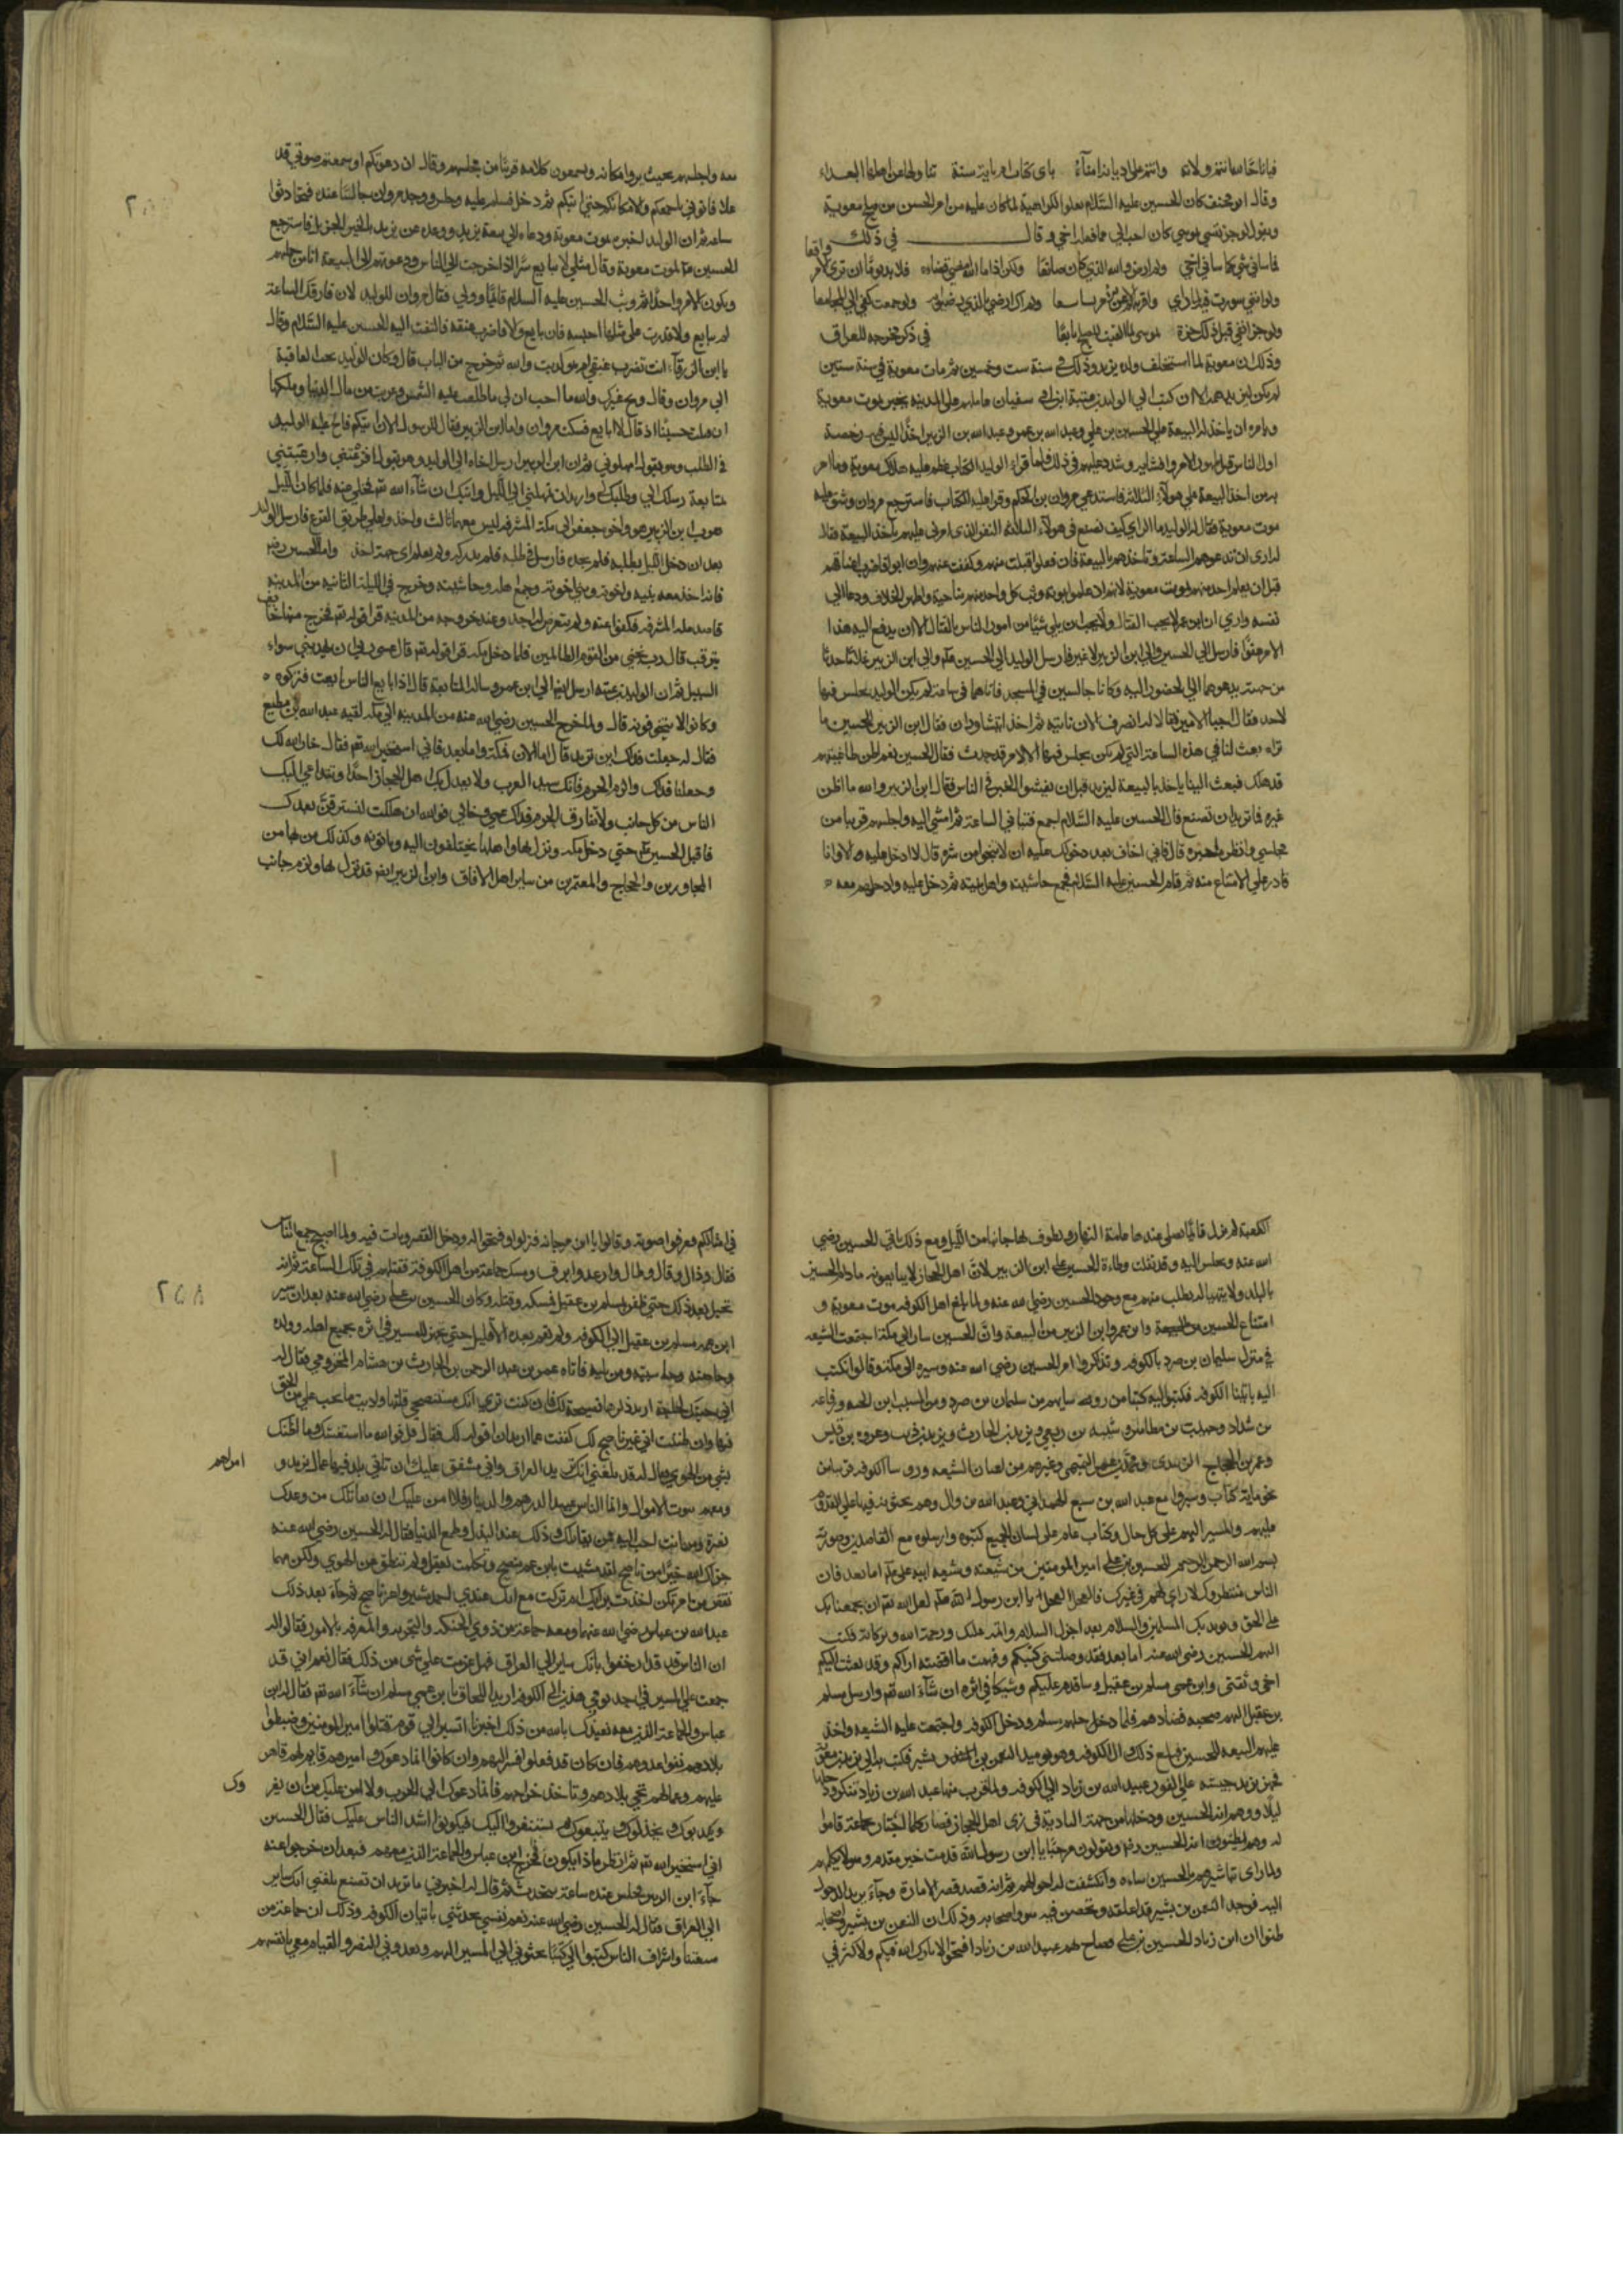 وقال ابو مخنف كان الحسين عليه السلام يعلوا الكراهية لما كان عليه من امر الحسن من صلح معوية
ويقول لو جز نفسي بموسي كان احب الي مما فعل اخي وقال في ذلك
فما ساني شي كما ساني اخي ولم ارض والله الذي كان صانعا ولكن اذا ما الله امضي قضاءه فلا بد يوما ان تري الامر واقعا
ولو انني شورت فيه لما راي
ولم اك ارضي بالذي رضوا به ولو جمعت كفي الي المجامعا
ولو جز انفي قبل ذلك جزة بموسي لما القيت للصلح تابعا في ذكر مخرجه للعراق
وذلك ان معوية لما استخلف ولده يزيد وذلك في سنة ست وخمسين ثم مات معوية في سنة ستين
لم يكن ليزيد هم الا ان كتب الي الوليد بن عتبة ابن ابي سفيان عامله علي المدينه يخبره بموت معوية
ويامره ان ياخذ له البيعة علي الحسين بن علي وعبد الله بن عمر وعبد الله بن الزبير اخذا ليس فيه رخصة
اول الناس قبل ظهور الامر وافشايه وشدد عليهم في ذلك فلما قراء الوليد الكتاب عظم عليه هلاك معوية وما امر
به من اخذ البيعة علي هولاء الثلاثة فاستدعي مروان بن الحكم وقرا عليه الكتاب فاسترجع مروان وشق عليه
موت معوية فقال له الوليد ما الراي كيف نصنع في هولاء الثلاثة النفر الذي امرني عليهم باخذ البيعة فقال
له اري ان تدعوهم الساعة وتاخذهم بالبيعة فان فعلوا قبلت منهم وكففت عنهم وان ابوا فاضرب اعناقهم
قبل ان يعلم احد منهم بموت معوية لانهم ان علموا بموته وثب كل واحد منهم بناحية واظهر الخلاف ودعا الي
نفسه واري ان ابن عمر لا يحب القتال ولا يحب ان يلي شيئا من امور الناس بالقتال الا ان يدفع اليه هذا
الامر عفوا فارسل الي الحسين والي ابن الزبير لا غير فارسل الوليد الي الحسين عم والي ابن الزبير غلاما حدثا
من حينه يدعوهما الي الحضور اليه وكانا جالسين في المسجد فاتاهما في ساعة لم يكن الوليد يجلس فيها
لاحد فقال اجيبا الامير فقالا له انصرف الان ناتيه ثم اخذ ايتشاوران فقال ابن الزبير للحسين ما
تراه بعث لنا في هذه الساعة التي لم يكن يجلس فيها الا لامر قد حدث فقال الحسين نعم اظن طاغيتهم
قد هلك فبعث الينا ياخذ بالبيعة ليزيد قبل ان يفشوا الخبر في الناس فقال ابن الزبير والله ما اظن
غيره فما تريد ان تصنع قال الحسين عليه السلام اجمع فتيا في الساعة ثم امشي اليه واجلسهم قريبا من
مجلسي وانظر ما خبره قال فاني اخاف بعد دخولك عليه ان لا تنجوا من شره قال لا ادخل عليه الا وانا
قادر علي الامتناع منه ثم قام الحسين عليه السلام فجمع حاشيته واهل بيته ثم دخل عليه وادخلهم معه
معه واجلسهم بحيث يروا مكانه ويسمعون كلامه قريبا من مجلسهم وقال ان دعوتكم او سمعتم صوتي قد
علا فاتوني باجمعكم والا مكانكم حتي اتيكم ثم دخل فسلم عليه وجلس ووجد مروان جالسا عنده فتحادثوا
ساعه ثم ان الوليد اخبره بموت معوية ودعاه الي بيعة يزيد ووعده عن يزيد بالخير الجزيل فاسترجع
الحسين عم لموت معوية وقال مثلي لا يبايع سرا اذا خرجت الي الناس ودعوتهم الي البيعة
ويكون الامر واحدا ثم وثب الحسين عليه السلام قايما وولي فقال مروان للوليد لان فارقك الساعة
لم يبايع ولا قدرت علي مثلها احبسه فان بايع والا فاضرب عنقه فالتفت اليه الحسين عليه السلام وقال
يا ابن الزرقاء انت تضرب عنقي ام هو كذبت والله ثم خرج من الباب قال وكان الوليد يحب العاقبة
الي مروان وقال ويح غيرك والله ما احب ان لي ما طلعت عليه الشمس وغربت من مال الدنيا وملكها
ان قتلت حسينا اذ قال لا ابايع فسكت مروان واما ابن الزبير فقال للرسول الان اتيكم فالح عليه الوليد
في الطلب وهو يقول امهلوني ثم ان ابن الزبير ارسل اخاه الي الوليد وهو يقول افزعتني وارعبتني
بعد ان دخل الليل يطلبه فلم يجده فارسل في طلبه فلم يدركه ولم يعلم اي جهة اخذ واما الحسين رضه
فانه اخذ معه بنيه واخوته وبني اخوته وجميع اهله وحاشيته وخرج في الليلة الثانيه من المدينه
يترقب قال رب نجني من القوم الظالمين فلما دخل مكه قرا قوله تع قال عسي ربي ان يهديني سواء
السبيل ثم ان الوليد بن عتبه ارسل ايضا الي ابن عمر وساله المبايعة قال اذا بايع الناس بايعت فتركوه
وكانوا لا يتخوفونه قال ولما خرج الحسين رضي الله عنه من المدينه الي مكه لقيه عبد الله بن مطيع
فقال له جعلت فداك اين تريد قال اما الان فمكة واما بعد فاني استخير الله تع فقال خار الله لك
وجعلنا فداك والزم الحرم فانك سيد العرب ولا يعدل بك اهل الحجاز احدا وتتداعي اليك
الناس من كل جانب ولا تفارق الحرم فداك عمي وخالي فوالله ان هلكت لنسترقن بعدك
فاقبل الحسين عم حتي دخل مكه ونزل بها واهلها يختلفون اليه وياتونه وكذلك من بها من
المجاورين والحجاج والمعتمرين من ساير اهل الافاق وابن الزبير ايضم قد نزل بها ولزم جانب
الكعبة لم يزل قايما يصلي عندها عامة النهار ويطوف بها جانبا من الليل ومع ذلك ياتي الحسين رضي
الله عنه ويجلس اليه وقد ثقلت وطاءة الحسين علي ابن الزبير لان اهل الحجاز لا يبايعونه ما دام الحسين
بالبلد ولا يتهيا له يطلب منهم مع وجود الحسين رضي الله عنه ولما بلغ اهل الكوفه موت معوية و
امتناع الحسين من البيعة وابن عمر وابن الزبير من البيعة وان الحسين سار الي مكة اجتمعت الشيعه
في منزل سليمان بن صرد بالكوفه وتذاكروا امر الحسين رضي الله عنه وسيره الي مكة وقالوا نكتب
اليه ياتينا الكوفه فكتبوا اليه كتبا من روسايهم من سلمان بن صرد ومن المسيب ابن نجبه ورفاعه
بن شداد وحبيب بن مظاهر وشيبه بن ربعي ويزيد بن الحارث وعروه بن قيس
وعمر بن الحجاج الزبيدي ومحمد بن عمير التميمي وغيرهم من اعيان الشيعه وروسا الكوفه قريبا من
نحو ماية كتاب وسيروا مع عبد الله بن سبع الهمداني وعبد الله بن وال وهم يحثونه فيها علي القدوم
عليهم والمسير اليهم علي كل حال وكتاب عام علي لسان الجميع كتبوه وارسلوه مع القاصدين وصورته
بسم الله الرحمن الرحيم للحسين بن علي امير المومنين من شيعته وشيعه ابيه علي عم اما بعد فان
الناس منتظروك لا راي لهم في غيرك فالعجل العجل يا ابن رسول الله صلعم لعل الله تع ان يجمعنا بك
علي الحق ويويد بك المسلمين والسلام بعد اجزل السلام واتمه عليك ورحمة الله وبركاته فكتب
اليهم الحسين رضي الله عنه اما بعد فقد وصلتني كتبكم وفهمت ما اقتضته اراكم وقد بعثت اليكم
اخي وثقتي وابن عمي مسلم بن عقيل وساقدم عليكم وشيكا في اثره ان شاء الله تع وارسل مسلم
بن عقيل اليهم صحبه قصادهم فلما دخل مسلم ودخل الكوفه واجتمعت عليه الشيعه واخذ
عليهم البيعه للحسين
فجهز يزيد حينه علي الفور عبيد الله بن زياد الي الكوفه ولما قرب منها عبد الله بن زياد تنكر ودخلها
ليلا واوهم انه الحسين ودخلها من جهة البادية في زي اهل الحجاز فصار كلما اجتاز بجماعة قاموا
له وهم يظنون انه الحسين رضه ويقولون مرحبا يا ابن رسول الله قدمت خير مقدم وهو لا يكلمهم
ولما راي تباشيرهم بالحسين ساءه وانكشفت له احوالهم ثم انه قصد قصر الامارة وجاء يريد الدخول
اليه فوجد النعمن بن بشير قد اغلقه وتحصن فيه هو واصحابه وذلك ان النعمن بن بشير واصحابه
ظنوا ان ابن زياد الحسين بن علي فصاح بهم عبيد الله بن زياد افتحوا لا بارك الله فيكم ولا كثر في
في امثالكم فعرفوا صوته وقالوا يا ابن مرجانه فنزلوا وفتحوا له ودخل القصر وبات فيه ولما اصبح جمع الناس
فقال وذال وقال وطال وارعد وابرق ومسك جماعة من اهل الكوفة فقتلهم في تلك الساعة ثم انه
تحيل بعد ذلك حتي ظفر بمسلم بن عقيل فمسكه وقتله وكان الحسين بن علي رضي الله عنه بعد ان سير
ابن عمه مسلم بن عقيل الي الكوفه ولم يقم بعده الا قليل حتي تجهز للمسير في اثره بجميع اهله وولده
وخاصته وحاشيته ومن يليه فاتاه عمر بن عبد الرحمن بن الحارث بن هشام المخزومي فقال له
اني جيتك لحاجة اريد ذكرها نصيحة لك فان كنت تري انك مستنصحي قلتها واديت ما يجب علي من الحق
فيها وان ظننت اني غير ناصح لك كففت عما اريد ان اقوله لك فقال قل فوالله ما استغشك وما اظنك
بشي من الهوي فقال له قد بلغني انك تريد العراق واني مشفق عليك ان تاتي بلد فيها عمال يزيد و
امراهم
ومعهم بيوت الاموال وانما الناس عبيد الدرهم والدينار فلا امن عليك ان يقاتلك من وعدك
نصرة ومن انت احب اليه ممن يقاتلك وذلك عند البذل وطمع الدنيا فقال له الحسين رضي الله عنه
جزاك الله خيرا من ناصح لقد مشيت يا بن عم بنصح وتكلمت بعقل ولم تنطق عن الهوي ولكن مهما
نقض من امر يكن اخذت برايك ام تركت مع انك عندي احمد مشير واعز ناصح ثم جاءه بعد ذلك
عبد الله بن عباس رضي الله عنهما ومعه جماعة من ذوي الحنكه والتجربه والمعرفه بالامور فقالوا له
ان الناس قد ارجفوا بانك ساير الي العراق فهل عزمت علي شي من ذلك فقال نعم اني قد
اجمعت علي المسير في احد يومي هذين الي الكوفه اريد اللحاق بابن عمي مسلم ان شاء الله تع فقال له ابن
عباس والجماعة الذين معه نعيذك بالله من ذلك اخبرنا اتسير الي قوم قتلوا اميرهم وضبطوا
بلادهم ونفوا عدوهم فان كان قد فعلوا فسر اليهم وان كانوا انما دعوك واميرهم قايم لهم قاهر
عليهم وعمالهم تجبي بلادهم وتاخذ خراجهم فانما دعوك الي الحرب ولا امن عليك من ان يغروك
ويكذبوك ويخذلوك ويتبعوك ثم يستنفروا اليك فيكونوا اشد الناس عليك فقال الحسين
اني استخير الله تع ثم انظر ماذا يكون فخرج ابن عباس والجماعة الذين معه ثم فبعد ان خرجوا عنه
جاءه ابن الزبير فجلس عنده ساعة يتحدث ثم قال له اخبرني ما تريد ان تصنع بلغني انك ساير
الي العراق فقال له الحسين رضي الله عنه نعم نفسي تحدثني باتيان الكوفه وذلك ان جماعة من
شيعتنا واشراف الناس كتبوا الي كتبا يحثوني الي المسير اليهم ويعدوني النصر والقيام معي بانفسهم
٢٥٨